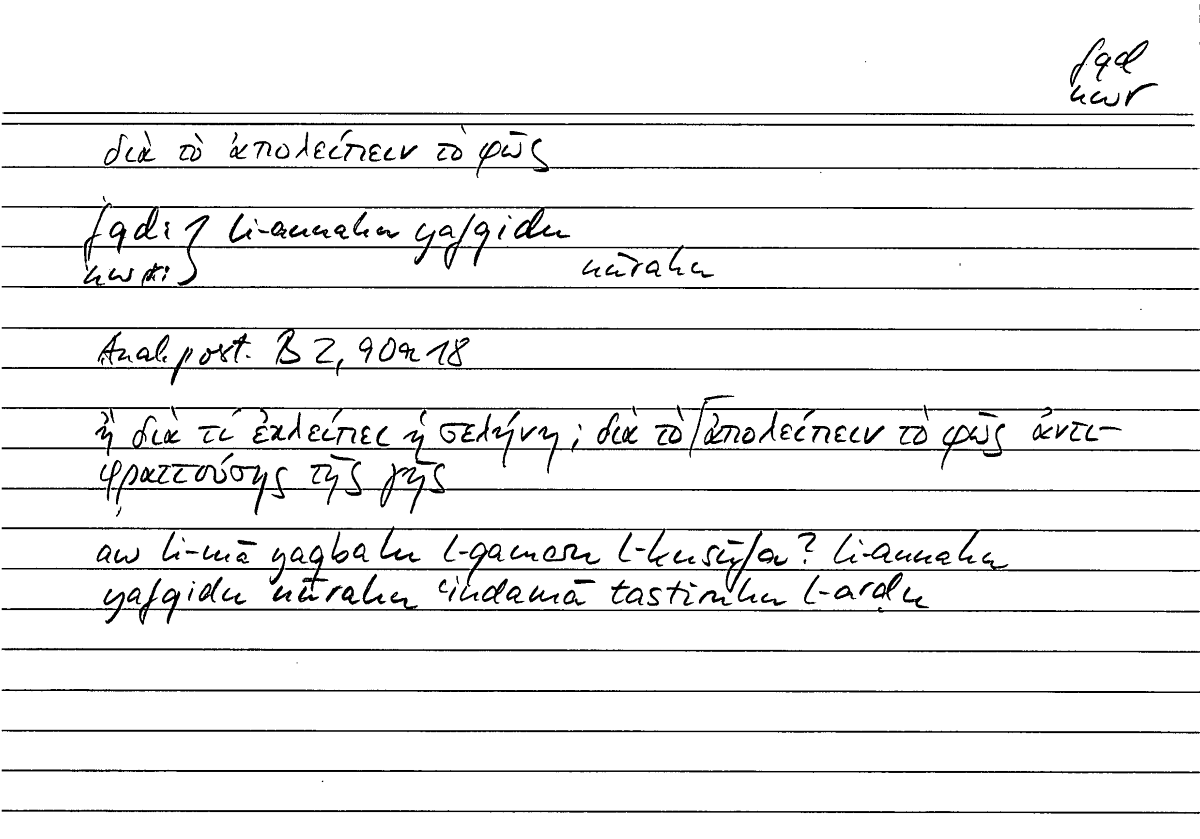 fqd
nwr
διὰ τὸ ἀπολείπειν τὸ φῶς
fqd: } li-annahu yafqidu
nwr: nūrahu
Anal. post. B 2, 90a18
ἢ διὰ τί ἐκλείπει ἡ σελήνη; διὰ τὸ ἀπολείπειν τὸ φῶς ἀντι-
φραττούσης τῆς γῆς
aw li-mā yaqbalu l-qamaru l-kusūfa? li-annahu
yafqidu nūrahu ʿindamā tastiruhu l-arḍu